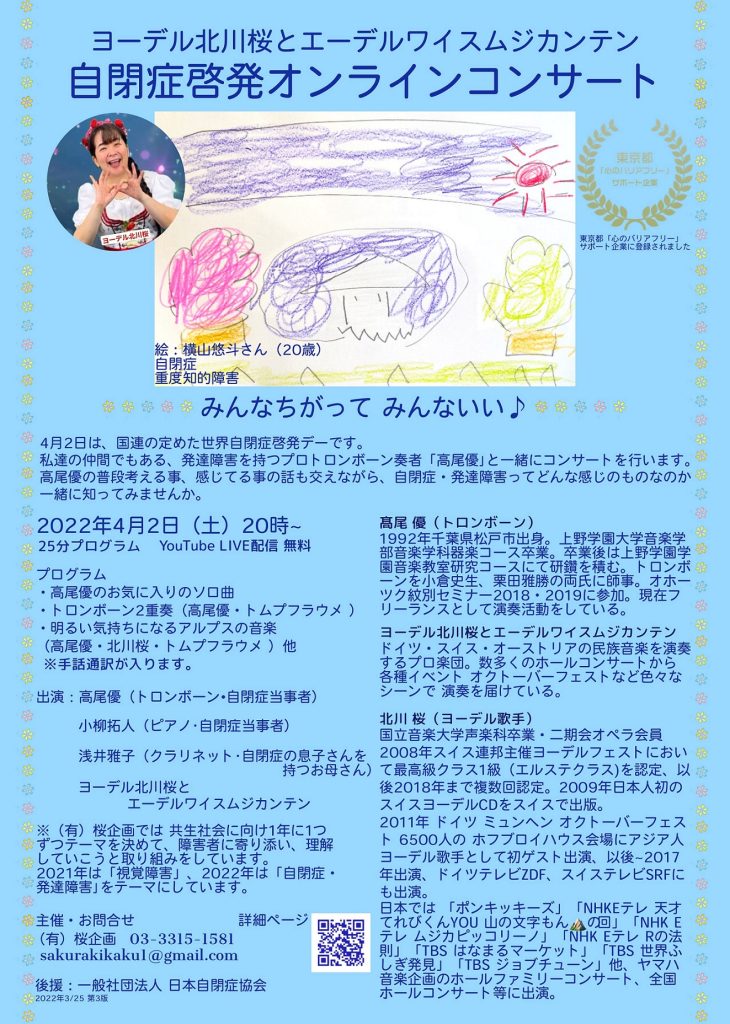 ヨーデル北川桜とエーデルワイスムジカンテン
自閉症啓発オンラインコンサート
ヨーデル北川桜
東京都
「心のバリアフリー」
サポート企業
東京都「心のバリアフリー」
サポート企業に登録されました
絵：横山悠斗さん（20歳）
自閉症
重度知的障害
みんなちがって みんないい♪
4月2日は、国連の定めた世界自閉症啓発デーです。
私達の仲間でもある、発達障害を持つプロトロンボーン奏者「高尾優」と一緒にコンサートを行います。
高尾優の普段考える事、感じてる事の話も交えながら、自閉症・発達障害ってどんな感じのものなのか
一緒に知ってみませんか。
2022年4月2日（土）20時~
25分プログラム YouTube LIVE配信 無料
プログラム
・高尾優のお気に入りのソロ曲
・トロンボーン2重奏（高尾優・トムプフラウメ ）
・明るい気持ちになるアルプスの音楽
（高尾優・北川桜・トムプフラウメ ）他
※手話通訳が入ります。
出演：高尾優（トロンボーン・自閉症当事者）
小柳拓人（ピアノ・自閉症当事者）
浅井雅子（クラリネット・自閉症の息子さんを
持つお母さん）
ヨーデル北川桜と
エーデルワイスムジカンテン
※（有）桜企画では 共生社会に向け1年に1つ
ずつテーマを決めて、障害者に寄り添い、理解
していこうと取り組みをしています。
2021年は「視覚障害」、2022年は「自閉症・
発達障害」をテーマにしています。
主催・お問合せ 詳細ページ
（有）桜企画 03-3315-1581
sakurakikaku1@gmail.com
後援：一般社団法人 日本自閉症協会
2022年3/25 第3版
髙尾 優（トロンボーン）
1992年千葉県松戸市出身。上野学園大学音楽学
部音楽学科器楽コース卒業。卒業後は上野学園学
園音楽教室研究コースにて研鑽を積む。トロンボ
ーンを小倉史生、栗田雅勝の両氏に師事。オホー
ツク紋別セミナー2018・2019に参加。現在フ
リーランスとして演奏活動をしている。
ヨーデル北川桜とエーデルワイスムジカンテン
ドイツ・スイス・オーストリアの民族音楽を演奏
するプロ楽団。数多くのホールコンサートから
各種イベント オクトーバーフェストなど色々な
シーンで 演奏を届けている。
北川 桜（ヨーデル歌手）
国立音楽大学声楽科卒業・二期会オペラ会員
2008年スイス連邦主催ヨーデルフェストにおい
て最高級クラス1級（エルステクラス)を認定、以
後2018年まで複数回認定。2009年日本人初の
スイスヨーデルCDをスイスで出版。
2011年 ドイツ ミュンヘン オクトーバーフェス
ト 6500人の ホフブロイハウス会場にアジア人
ヨーデル歌手として初ゲスト出演、以後~2017
年出演、ドイツテレビZDF、スイステレビSRFに
も出演。
日本では 「ポンキッキーズ」「NHKEテレ 天才
てれびくんYOU 山の文字もん🏔の回」「NHK E
テレ ムジカピッコリーノ」「NHK Eテレ Rの法
則」「TBS はなまるマーケット」「TBS 世界ふ
しぎ発見」「TBS ジョブチューン」他、ヤマハ
音楽企画のホールファミリーコンサート、全国
ホールコンサート等に出演。